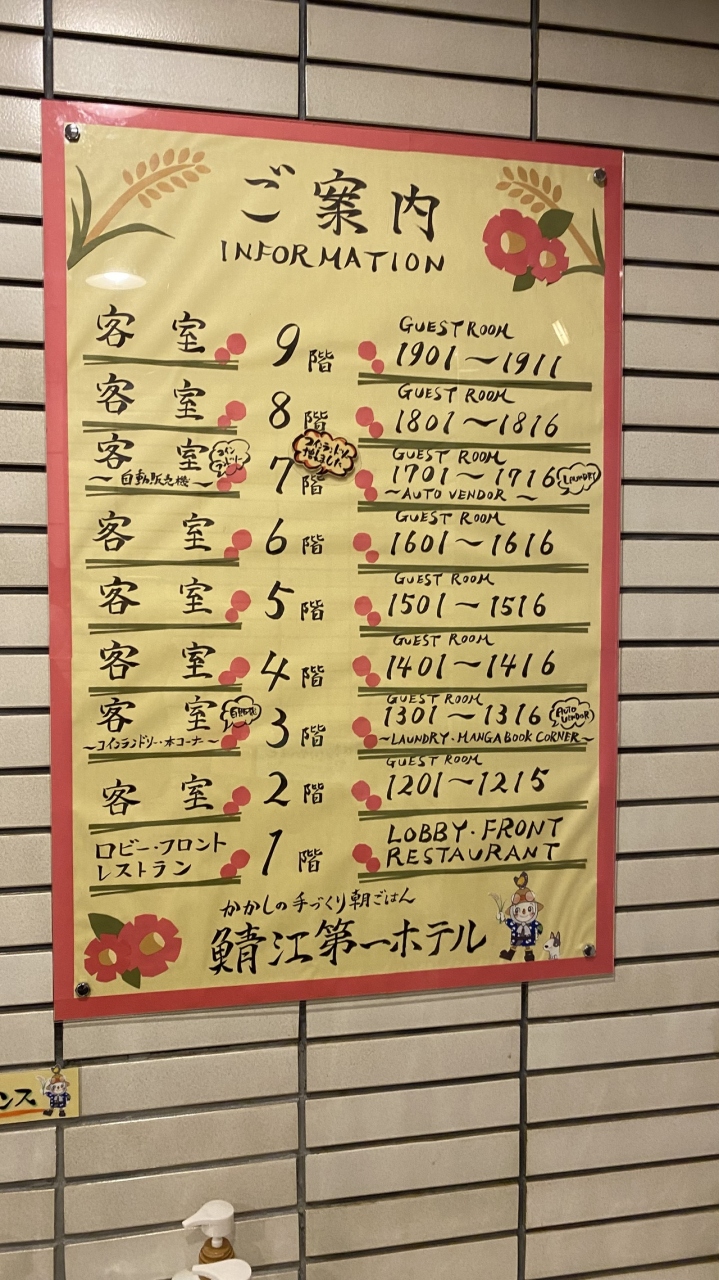 ご案内
INFORMATION
客室 9階 GUEST ROOM
1901〜1911
客室 8階 GUEST ROOM
1801〜1816
客室 コインランドリー 7階 コインランドリー増えました GUEST ROOM
〜自動販売機〜 1701〜1716 LAUNDRY
〜AUTO VENDOR〜
客室 6階 GUEST ROOM
1601〜1616
客室 5階 GUEST ROOM
1501〜1516
客室 4階 GUEST ROOM
1401〜1416
客室 自販機 3階 GUEST ROOM
1301〜1316 AUTO VENDOR
〜コインランドリー・本コーナー〜 〜LAUNDRY・MANGA BOOK CORNER〜
客室 2階 GUEST ROOM
1201〜1215
ロビー・フロント 1階 LOBBY・FRONT
レストラン RESTAURANT
かかしの手づくり朝ごはん
鯖江第一ホテル
ンス